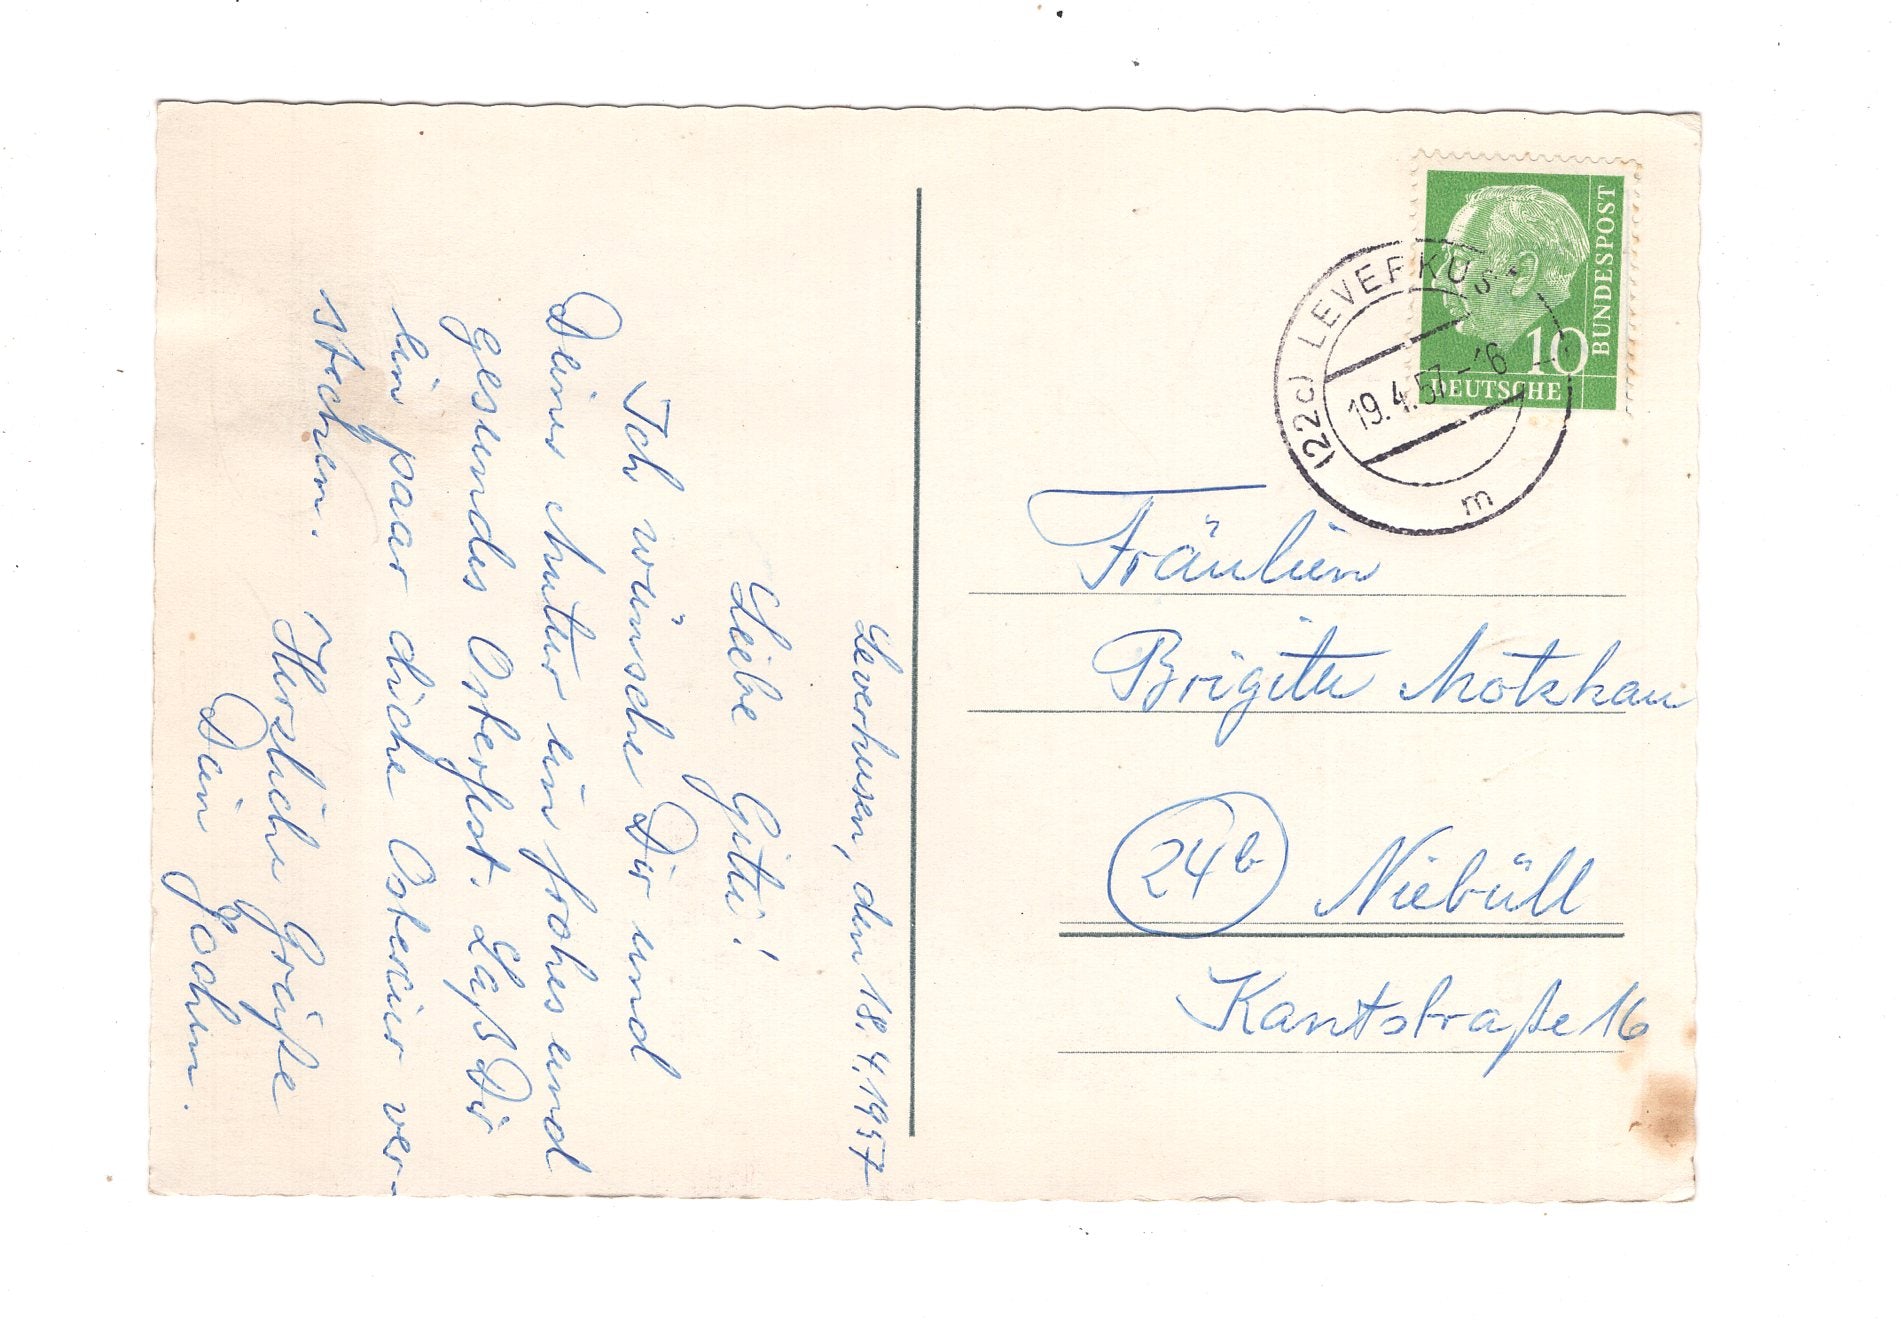 Leverkusen, den 18.4.1957
Liebe Gitti!
Ich wünsche Dir und
Deiner Mutter ein frohes und
gesundes Osterfest. Laß Dir
ein paar dicke Ostereier ver-
stecken.
Herzliche Grüße
Dein Jochen.
BUNDESPOST
10
DEUTSCHE
(22c) LEVERKUS
19.4.57-6
m
Fräulein
Brigitte Motzkau
24b Niebüll
Kantstraße 16